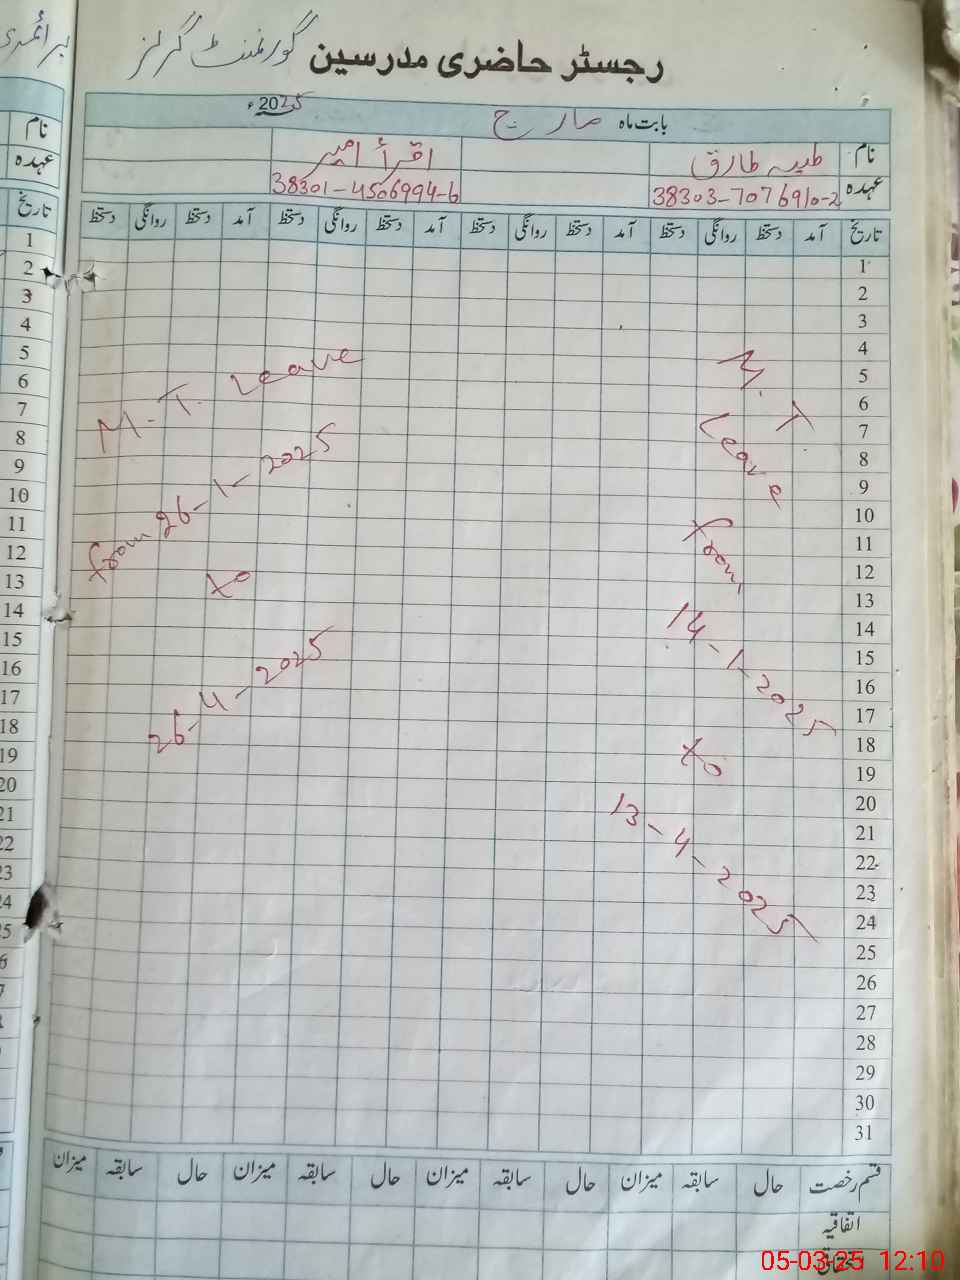 رجسٹر حاضری مدرسین گورنمنٹ گرلز
بابت ماہ مارچ 2025ء
نام طیبہ طارق اقرأ امیر
عہدہ 38303-7076910-2 38301-4506994-6
تاریخ آمد دستخط روانگی دستخط آمد دستخط روانگی دستخط آمد دستخط روانگی دستخط آمد دستخط روانگی دستخط
1
2
3
4
5
6
7
8
9
10
11
12
13
14
15
16
17
18
19
20
21
22
23
24
25
26
27
28
29
30
31
M.T
Leave
from
14-1-2025
to
13-4-2025
M.T. Leave
from 26-1-2025
to
26-4-2025
قسم رخصت حال سابقہ میزان حال سابقہ میزان حال سابقہ میزان حال سابقہ میزان
اتفاقیہ
پرائمری
نام
عہدہ
تاریخ
1
2
3
4
5
6
7
8
9
10
11
12
13
14
15
16
17
18
19
20
21
22
23
24
05-03-25 12:10